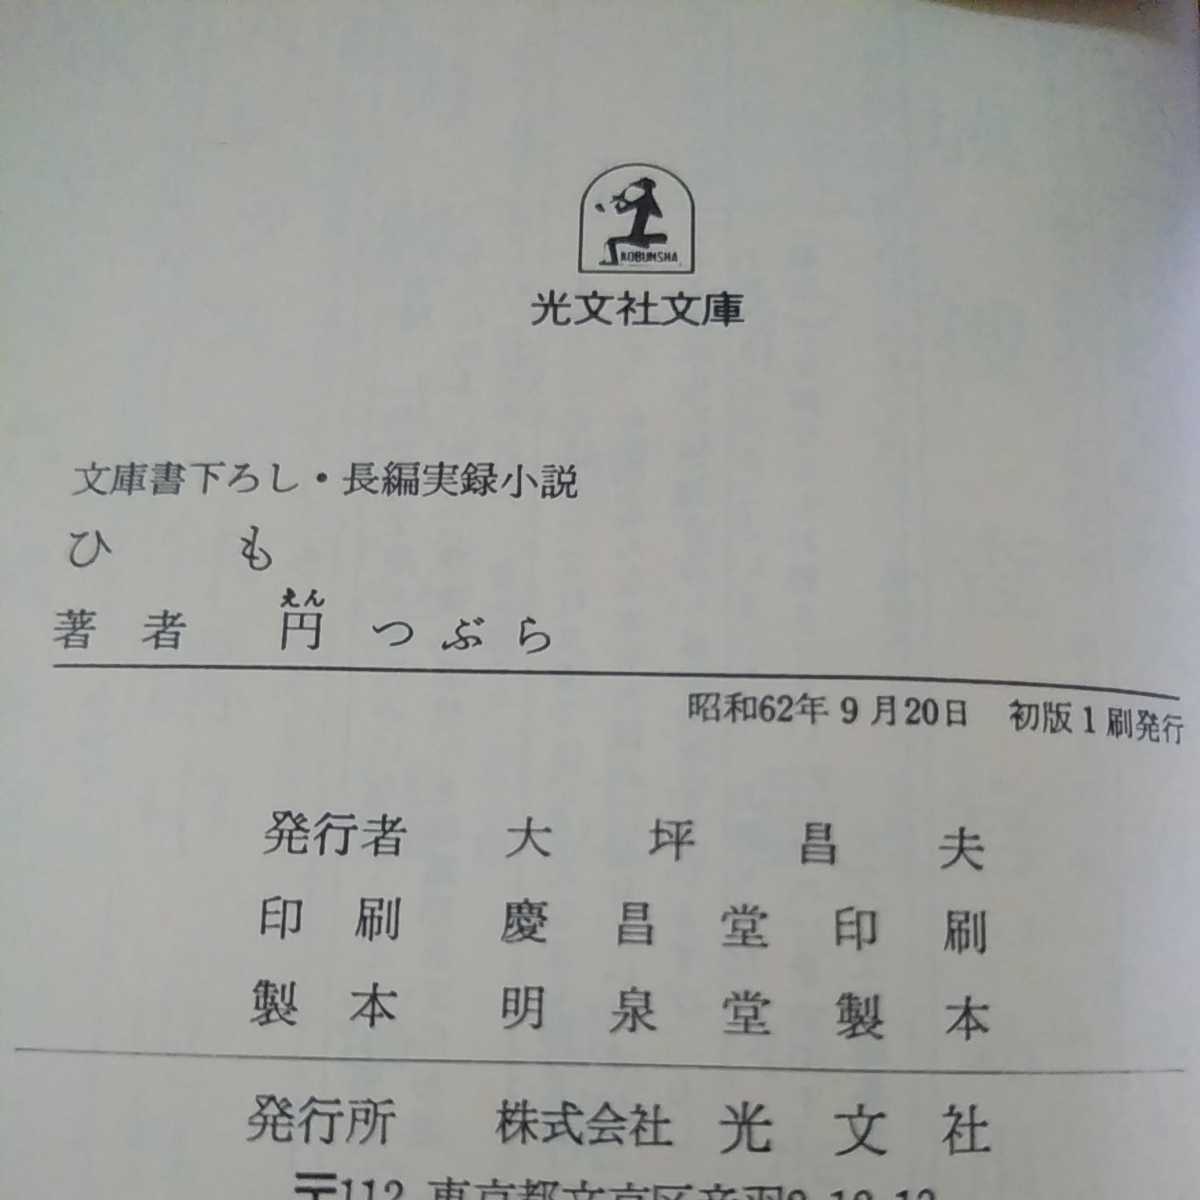 KOBUNSHA
光文社文庫
文庫書下ろし・長編実録小説
ひも
えん
著者 円つぶら
昭和62年9月20日 初版1刷発行
発行者 大坪昌夫
印刷 慶昌堂印刷
製本 明泉堂製本
発行所 株式会社 光文社
〒112 東京都文京区音羽2-12-13